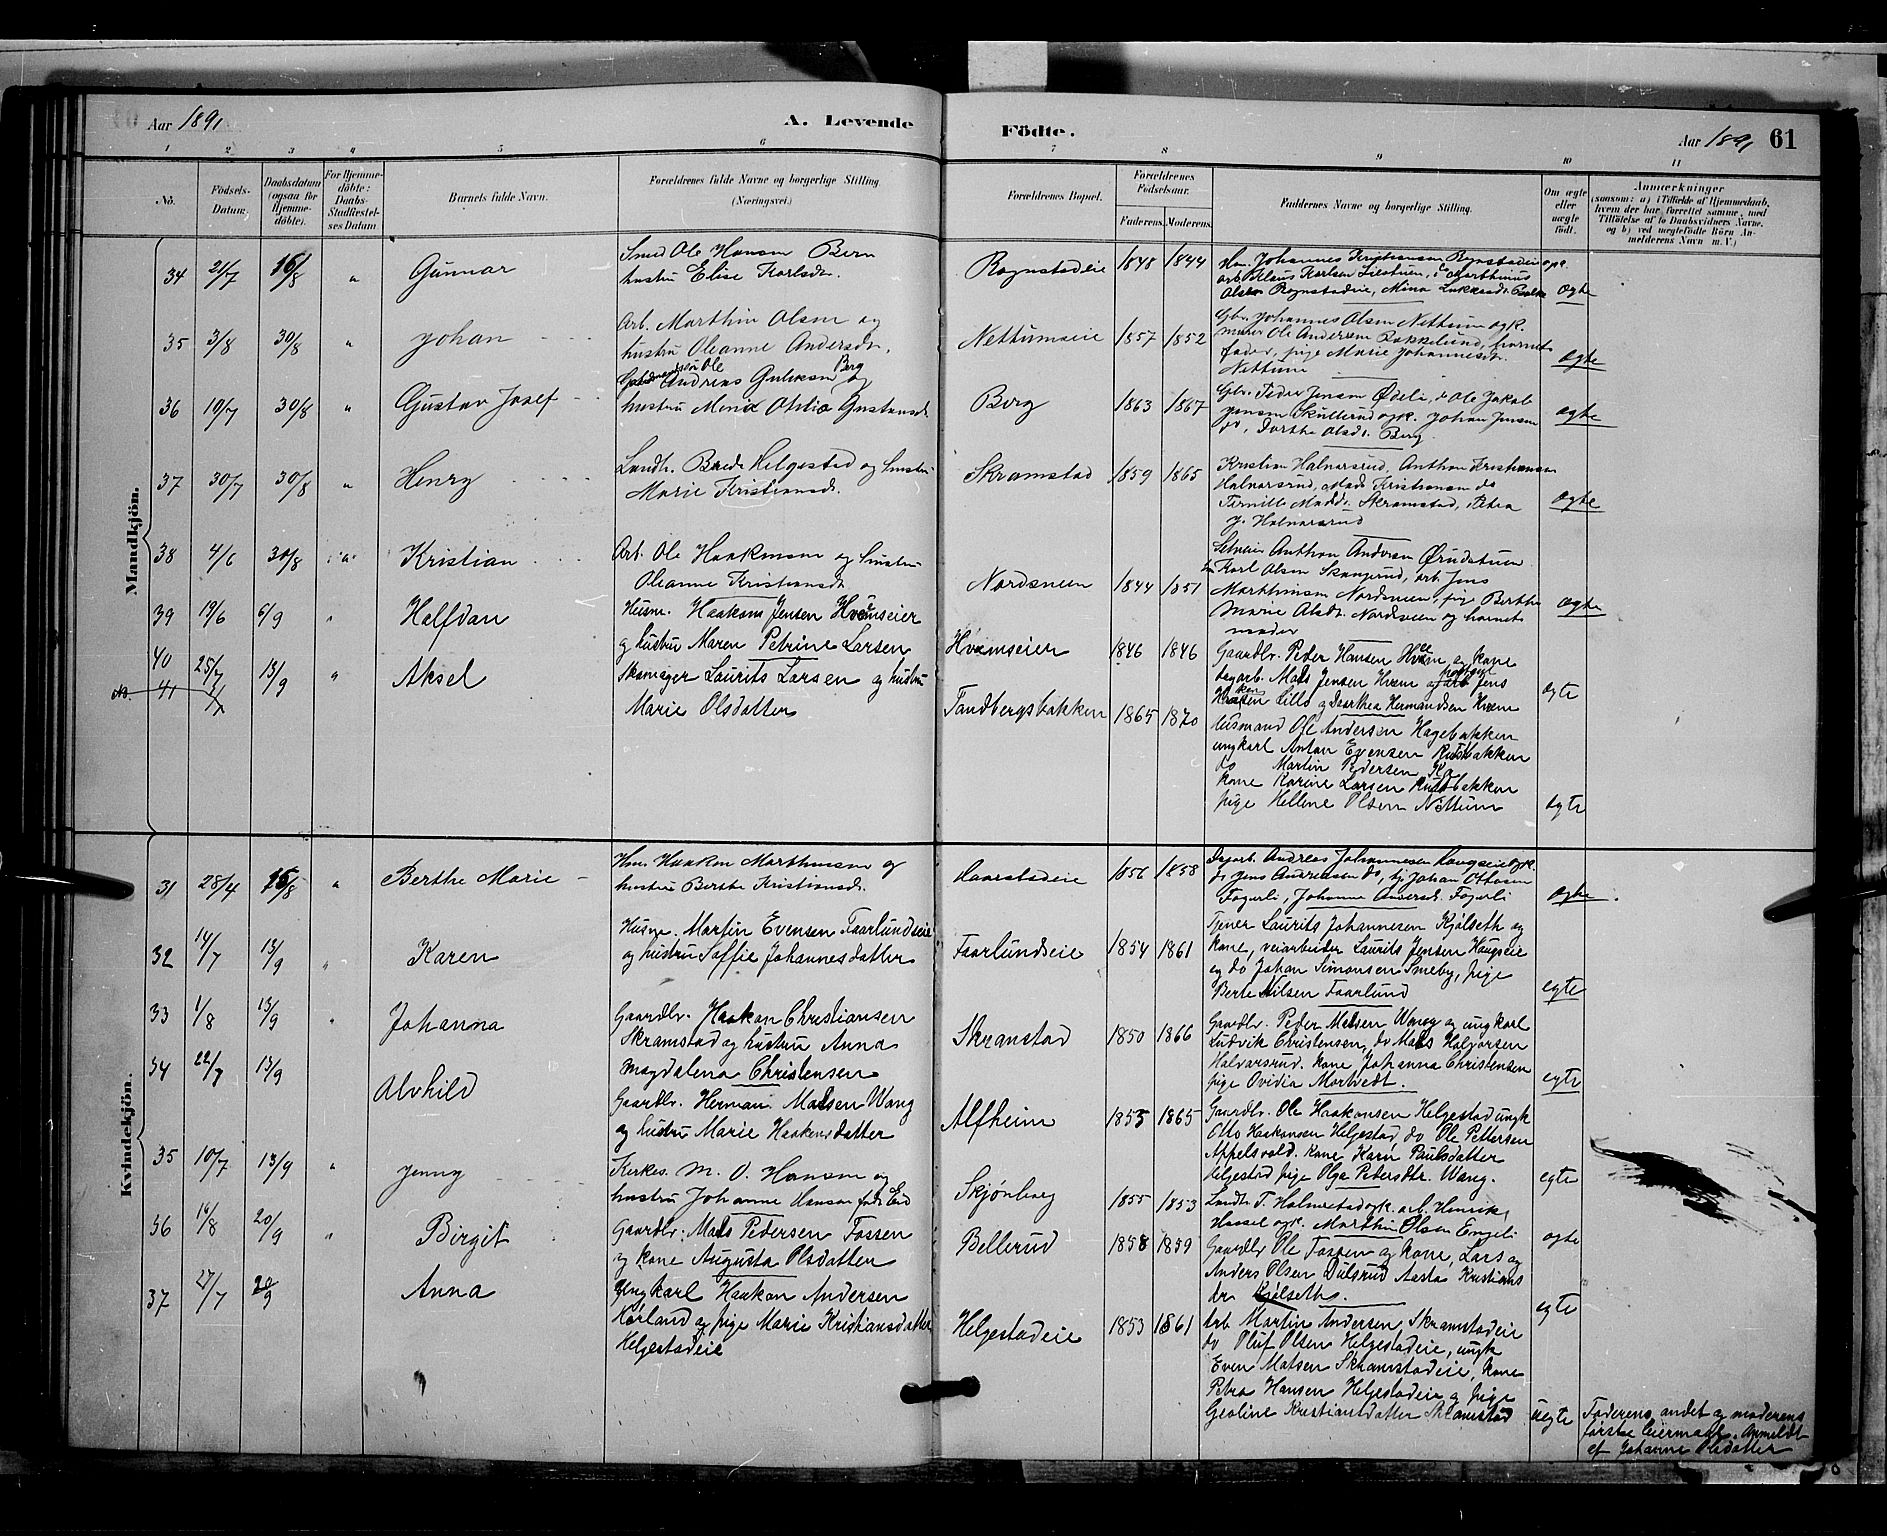 Aar 1891
A. Levende
Födte.
Aar 1891
61
1 2 3 4 5 6 7 8 9 10 11
No.
Födsels-
Datum.
Daabsdatum
(ogsaa for
Hjemme-
döbte).
For Hjemme-
döbte:
Daabs-
Stadfæstel-
ses Datum
Barnets fulde Navn.
Forældrenes fulde Navne og borgerlige Stilling
(Næringsvei.)
Forældrenes Bopæl.
Forældrenes
Födselsaar.
Faderens.
Moderens.
Faddernes Navne og borgerlige Stilling.
Om ægte
eller
uægte
födt.
Anmærkninger
(saasom: a) i Tilfælde af Hjemmedaab,
hvem der har forrettet samme, med
Tilföielse af to Daabsvidners Navne,
og b) ved uægtefödte Börn An-
melderens Navn m. V.)
Mandkjön.
34 21/7 16/8 " Gunnar
Smed Ole Hansen Bern
hustru Elise Karlsdr.
Rognstadeie 1848 1844
Hm. Johannes Kristiansen Rognstadeie og k.
Olsen Rognstadeie, Mina
ægte
35 3/8 30/8 " Johan
Arb. Marthin Olsen og
hustru Oleanne Andersdr.
Nettumseie 1857 1852
Gbr. Johannes Olsen Nettum og k.
murer Ole Andersen Bakkelund, barnets
fader, pige Marie Johannesdr.
Nettum
ægte
36 10/7 30/8 " Gustav Josef
Gaardmandssøn Ole
Andreas Gulikson Berg og
hustru Maria Otilia Gustavsdr.
Berg 1863 1867
Gbr. Peder Jensen Ødeli, Ole Jakob
Jensen Skullerud og k. Johan Jensen
do, Dorthe Olsdr. Berg.
ægte
37 30/7 30/8 " Henry
Landh. Brede Helgestad og hustru
Marie Kristiansdr.
Skramstad 1859 1865
Kristian Halvarsrud, Anthon Kristiansen
Halvarsrud, Mads Kristiansen do
Pernille Madsdr. Skramstad, Petra
J. Halvarsrud
ægte
38 4/6 30/8 " Kristian
Arb. Ole Haakensen og hustru
Oleanne Kristiansdr
Nordsveen 1844 1851
Selveier Anthon Andersen Ørudstuen
Karl Olsen Skangerud, arb. Jens
Marthinsen Nordsveen, pige Berthe
Marie Olsdr. Nordsveen og barnets
moder
ægte
39 19/6 6/9 " Halfdan
Husm. Haakon Jensen Hvamseier
og hustru Maren Petrine Larsen
Hvamseier 1846 1846
Gaardbr. Peder Hansen Hvam og kone
dagarb. Mads Jensen Hvam og arb Jens
Haaken Lillo og Dorthea Hermandsen Hvam
egte
40 25/7 13/9 " Aksel
Skomager Laurits Larsen og hustru
Marie Olsdatter
Tandbergsbakken 1865 1870
Husmand Ole Andersen Hagebakken
ungkarl Anton Evensen Rudsbakken
do Martin Pedersen do
kone Karine Larsen Rudsbakken
pige Hellene Olsen Nettum
egte
41
Kvindekjön.
31 28/4 16/8 " Berthe Marie
Hm. Haakon Marthinsen og
hustru Berthe Kristiansdr.
Haarstadeie 1856 1858
Dagarb. Andreas Johannesen Haugseie og k.
do Jens Andreasen do, Johan Ottosen
Fagerli, Johanne Andersdr. Fagerli
ægte
32 14/7 13/9 " Karen
Husm. Martin Evensen Faarlundseie
og hustru Soffie Johannesdatter
Faarlundseie 1854 1861
Tjener Laurits Johannesen Kjølseth og
kone, veiarbeider Laurits Jensen Haugseie
og do Johan Simonsen Smeby, pige
Berte Nilsen Faarlund
egte
33 1/8 13/9 " Johanna
Gaardbr. Haakon Christiansen
Skramstad og hustru Anna
Magdalena Christensen
Skramstad 1850 1866
Gaardbr. Peder Madsen Wang og ungkarl
Ludvik Christensen, do Mads Halvorsen
Halvarsrud. kone Johanna Christensen
pige Ovidia Mortvedt.
egte
34 22/7 13/9 Alvhild
Gaardbr. Herman Madsen Wang
og hustru Marie Haakensdatter
Alfheim 1855 1865
Gaardbr. Ole Haakonsen Helgestad ungk
Otto Haakonsen Helgestad, do Ole Pettersen
Appelsvold. kone Karn Paulsdatter
Helgestad pige Olga Pedersdtr. Wang.
egte
35 10/7 13/9 " Jenny
Kirkes. M. O. Hansen og
hustru Johanne Hansen født Eid
Skjønberg 1855 1853
Landh. T. Halmrastad og k. arb. Henrik
Hassel og k. Marthin Olsen Engeli
ægte
36 16/8 20/9 " Birgit
Gaardbr. Mads Pedersen Fossen
og kone Augusta Olsdatter
Bellerud 1858 1859
Gaardbr Ole Fossen og kone, Lars og
Anders Olsen Dulsrud Aasta Kristians
dr. Kjølseth.
egte
37 27/7 20/9 Anna
Ungkarl Haakon Andersen
Horland og pige Marie Kristiansdatter
Helgestadeie
Helgestadeie 1853 1861
Arb. Martin Andersen Skramstadeie
do Oluf Olsen Helgestadeie, ungk
Even Matsen Skramstadeie, kone
Petra Hansen Helgestadeie og pige
Geoline Kristiansdatter Skramstad
uegte
Faderens andet og moderens
første leiermaal. Anmeldt
af Johanne Olsdatter